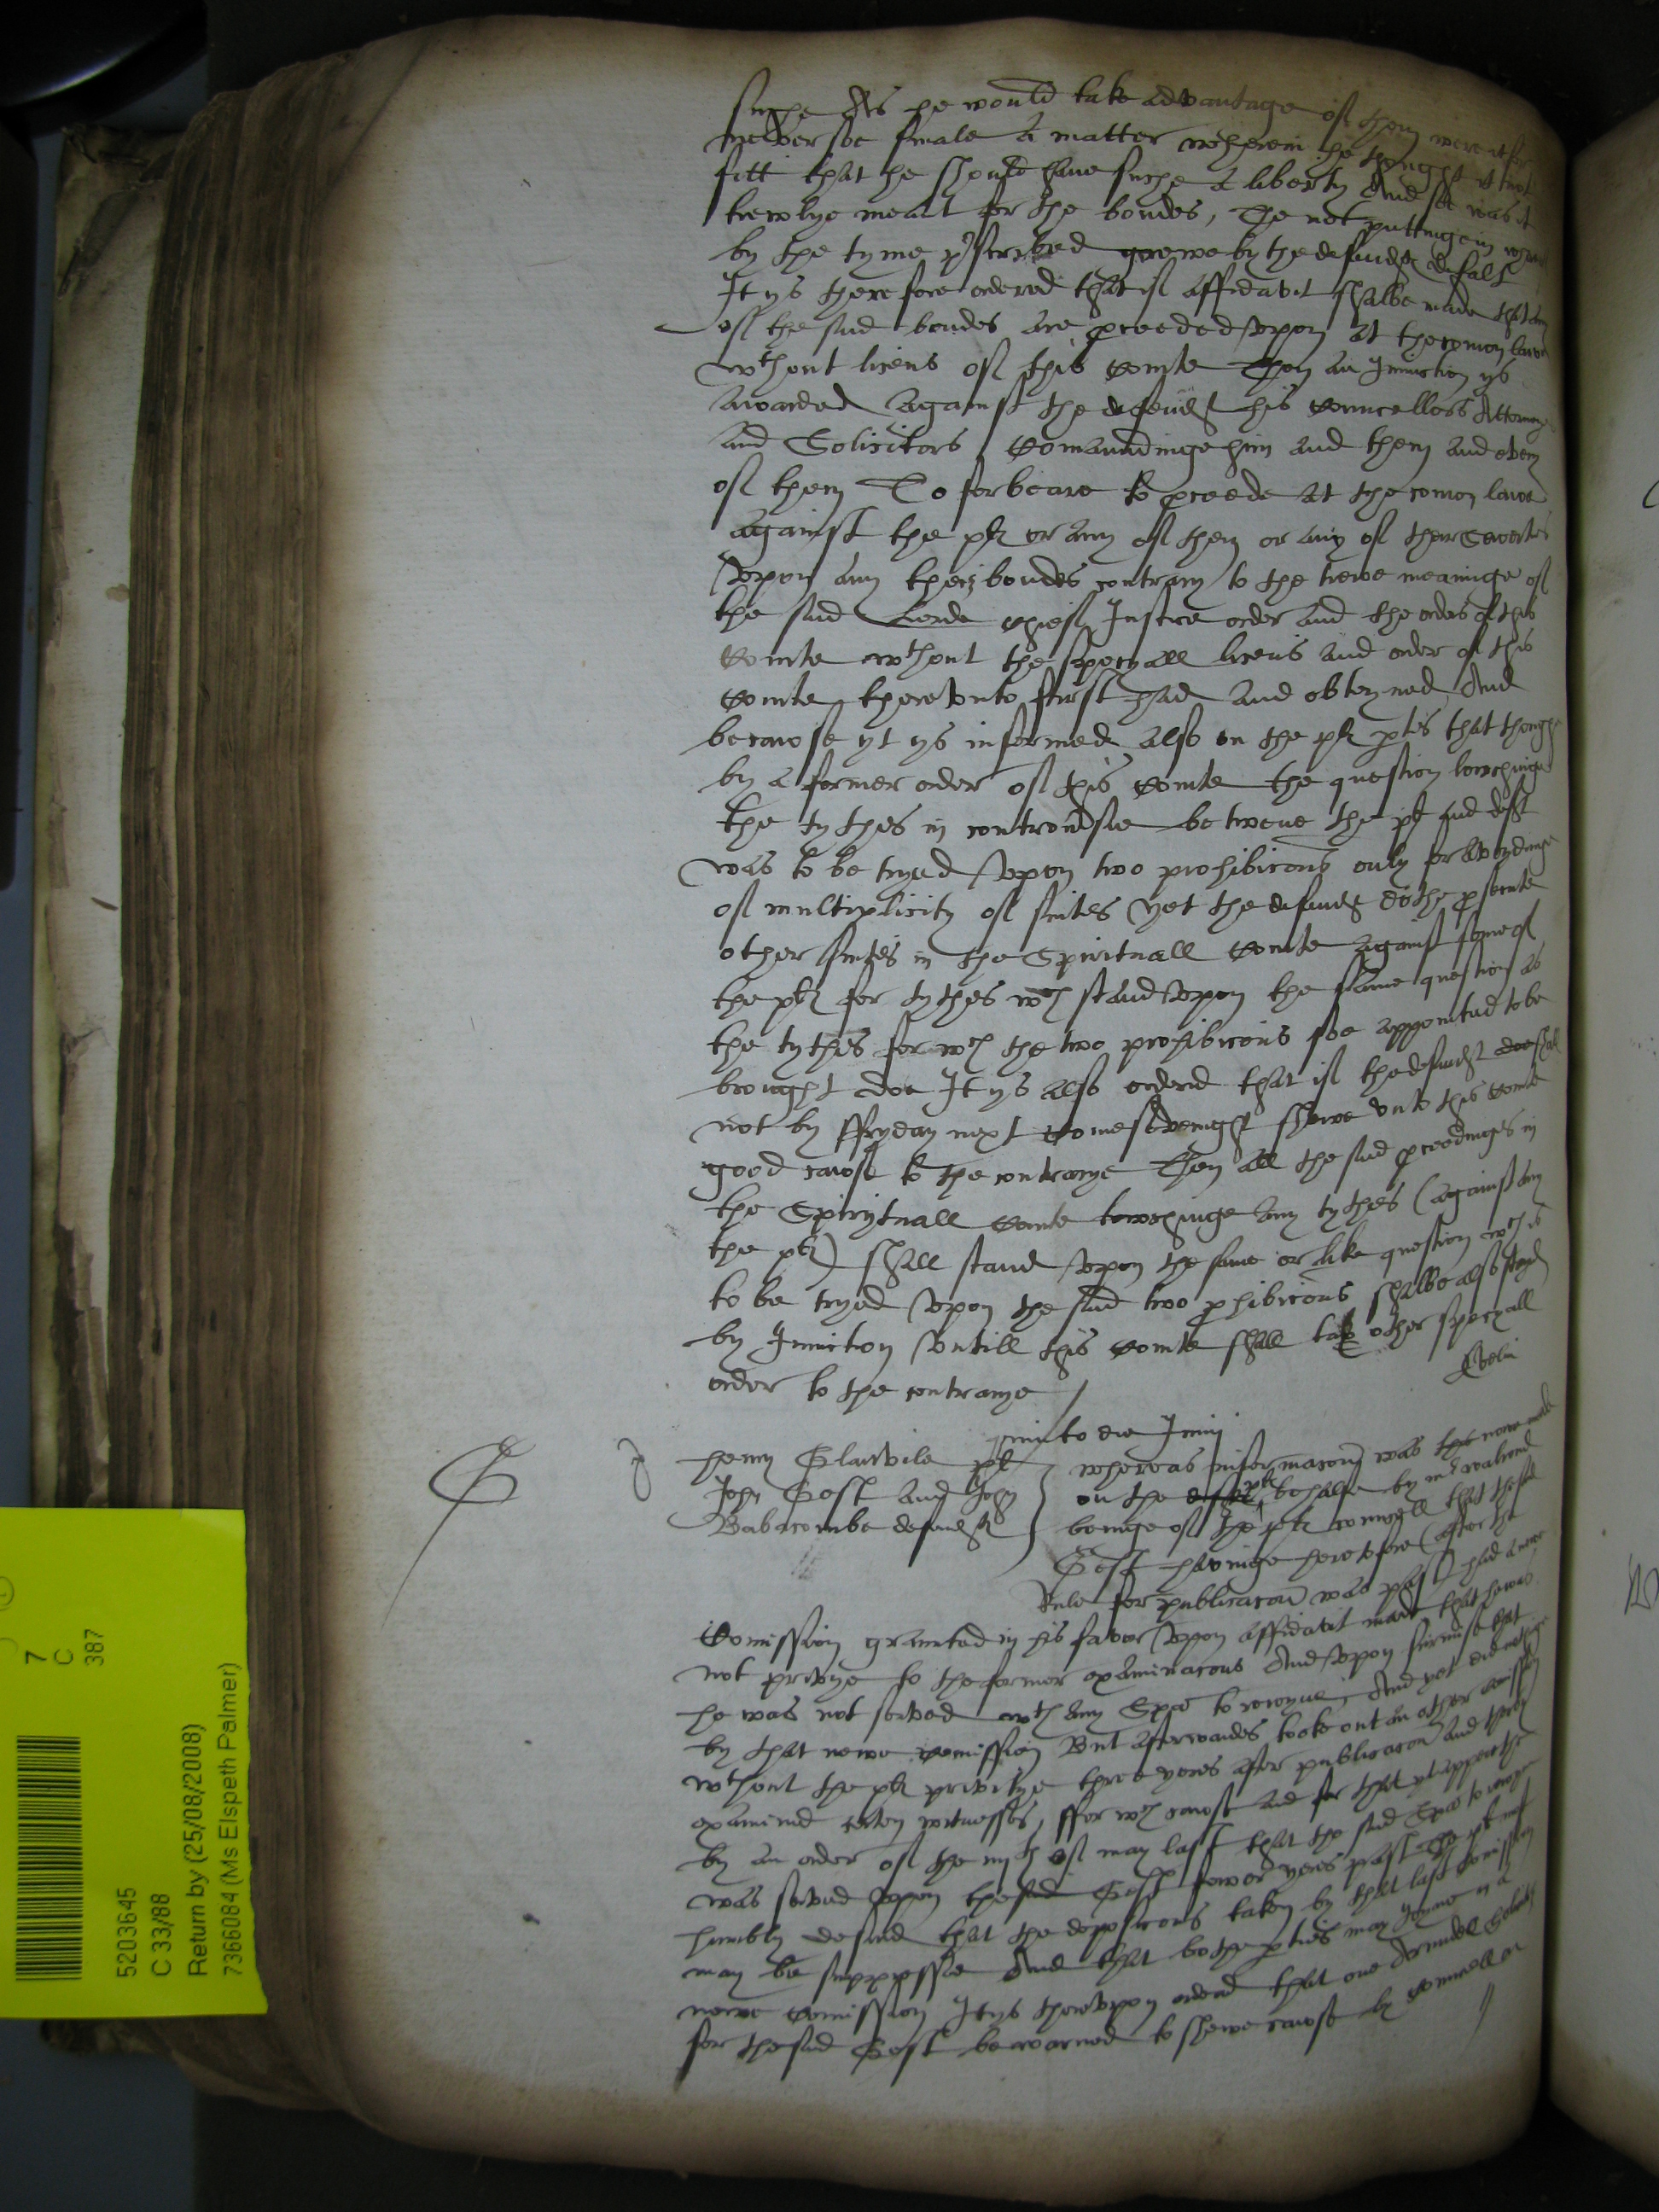 suche As he would take advantage of them were it for
never soe smale a matter wherein he thought it not
fitt that he should have suche a liberty And soe was it
trewlye meant for the bondes, The not puttinge in
by the tyme p'scribed grewe by the defendts default
It ys therefore ordered that if affidavit shalbe made that any
of the said bondes are proceeded upon at the comon lawe
wthout licens of this Courte Then an Iniunction ys
awarded against the defendt his Councellors Attorneys
and Solicitors Comaundinge him and them and every
of them To forbeare to proceede at the comon lawe
against the plts or any of them or any of their Seuerties
upon any their bondes contrary to the trewe meaninge of
the said Lorde chief Justice order and the orders of this
Courte wthout the specyall licens and order of this
Courte thereunto first had and obteyned And
because yt ys informed also on the plts ptes that though
by a former order of this Courte the question towchinge
the tythes in controversie betwene the plts and deft
was to be tryed upon two prohibicons only for avoydinge
of multiplicity of suites yet the defendt dothe prosecute
other suites in the Spirituall Courte against some of
the plts for tythes wch stand upon the same question as
the tythes for wch the two prohibicons soe appointed to be
brought doe It ys also ordered that if the defendt shall
not by ffryday next come sevenight shewe unto this Courte
good cause to the contrarye Then all the said proceedinges in
the Spirytuall Courte towchinge any tythes (against any
the plts) shall stand upon the same or like question wch is
to be tryed upon the said two prohibicons shalbe also stayed
by Iniunction untill this Courte shall take other specyall
order to the contrarye /
Evelin
quinto die Junij
Henry Glanvile plt
John Gest and John
Babacombe defendts
whereas informacon was the nowe made
on the plts behalfe by mr
beinge of the plts councell that the said
Gest havinge heretofore (after the
Rule for publicacon was past) had a newe
Comission graunted in his favor upon affidavit made that he was
not privye to the former examinacons And upon surmise that
he was not served wth any Spa to ioyne And yet did not ioyne
by that newe comission But afterwardes tooke out an other comission
wthout the plts privitye three yeres after publicacon and thereby
examined certen witnesses, ffor wch cause and for that yt appereth
by an order of the iiijth of may last that the said Spa to ioyne
was served upon the said Gest fower yeres past The plt most
humbly desired that the deposicons taken by that last comission
may be suppressed And that bothe pties may ioyne in a
newe comission It ys thereupon ordered that one Arundell Solicitor
for the said Gest be warned to shewe cause by Councell
5203645
C 33/88
Return by (25/08/2008)
7366084 (Ms Elspeth Palmer)
7
C
387